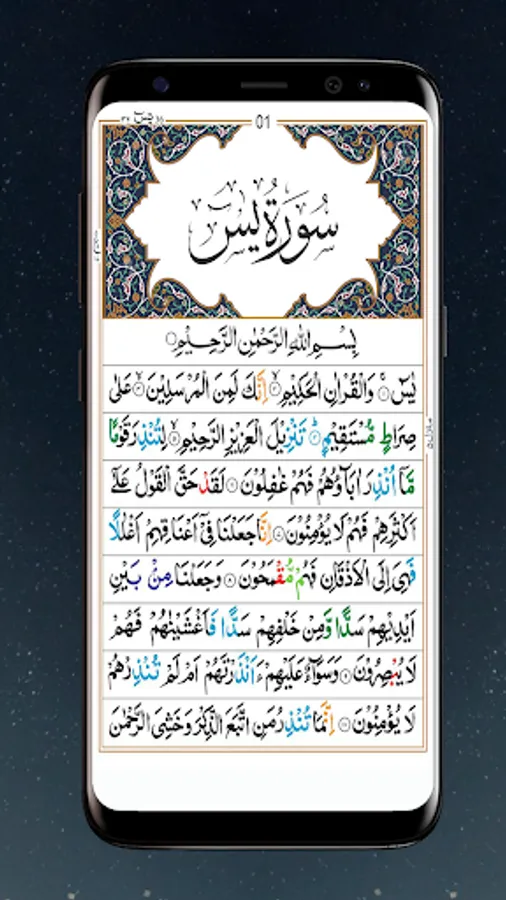 يٰسٓ ٣٦
01
سُورَةُ يٰسٓ
بِسْمِ اللّٰهِ الرَّحْمٰنِ الرَّحِيْمِ
يٰسٓ ۚ وَالْقُرْاٰنِ الْحَكِيْمِ ۙ اِنَّكَ لَمِنَ الْمُرْسَلِيْنَ ۙ عَلٰى
صِرَاطٍ مُّسْتَقِيْمٍ ؕ تَنْزِيْلَ الْعَزِيْزِ الرَّحِيْمِ ۙ لِتُنْذِرَ قَوْمًا
مَّاۤ اُنْذِرَ اٰبَآؤُهُمْ فَهُمْ غٰفِلُوْنَ لَقَدْ حَقَّ الْقَوْلُ عَلٰۤى
اَكْثَرِهِمْ فَهُمْ لَا يُؤْمِنُوْنَ اِنَّا جَعَلْنَا فِيْۤ اَعْنَاقِهِمْ اَغْلٰلًا
فَهِيَ اِلَى الْاَذْقَانِ فَهُمْ مُّقْمَحُوْنَ وَجَعَلْنَا مِنْۢ بَيْنِ
اَيْدِيْهِمْ سَدًّا وَّمِنْ خَلْفِهِمْ سَدًّا فَاَغْشَيْنٰهُمْ فَهُمْ
لَا يُبْصِرُوْنَ وَسَوَآءٌ عَلَيْهِمْ ءَاَنْذَرْتَهُمْ اَمْ لَمْ تُنْذِرْهُمْ
لَا يُؤْمِنُوْنَ اِنَّمَا تُنْذِرُ مَنِ اتَّبَعَ الذِّكْرَ وَخَشِيَ الرَّحْمٰنَ